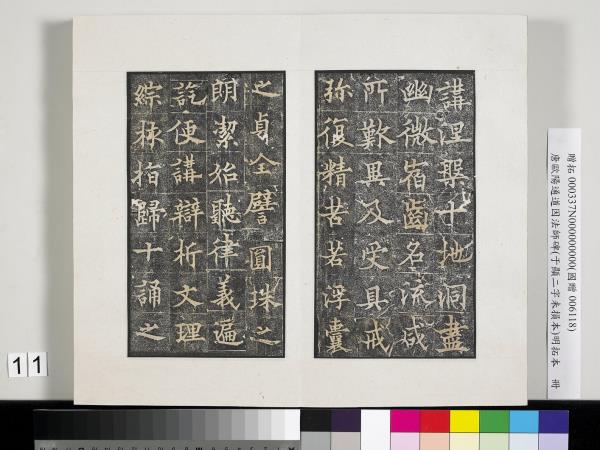 講涅槃十地洞盡
幽微宿齒名流咸
所歎異及受具戒
弥復精苦若浮囊
之貞全譬圓珠之
朗潔始聽律義遍
訖便講辯析文理
綜核指歸十誦之
贈拓 000337N000000000(國贈 006118)
唐歐陽通道因法師碑(于顯二字未損本)明拓本 冊
11